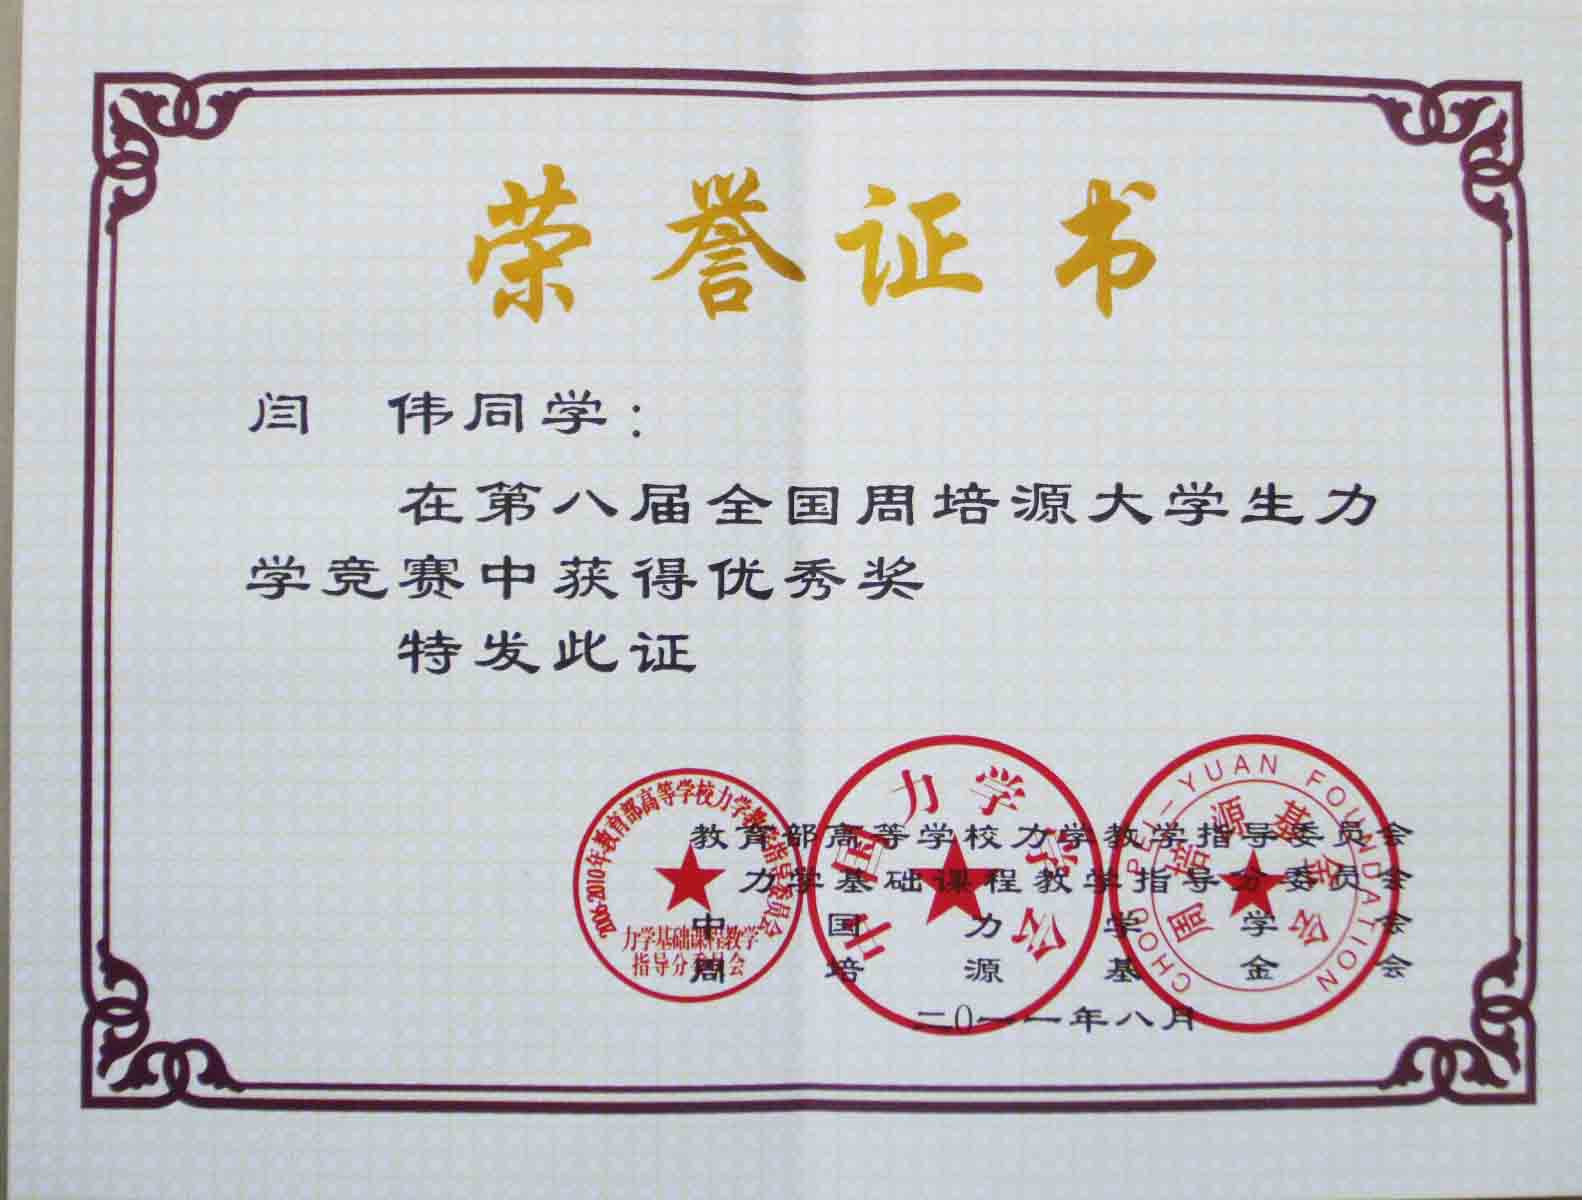 荣誉证书
闫 伟同学：
在第八届全国周培源大学生力
学竞赛中获得优秀奖
特发此证
教育部高等学校力学教学指导委员会
力学基础课程教学指导分委员会
中国力学学会
周培源基金会
二0一一年八月
2006-2010年教育部高等学校力学教学指导委员会
力学基础课程教学
指导分委员会
中国力学学会
CHOU PEI-YUAN FOUNDATION
周培源基金会